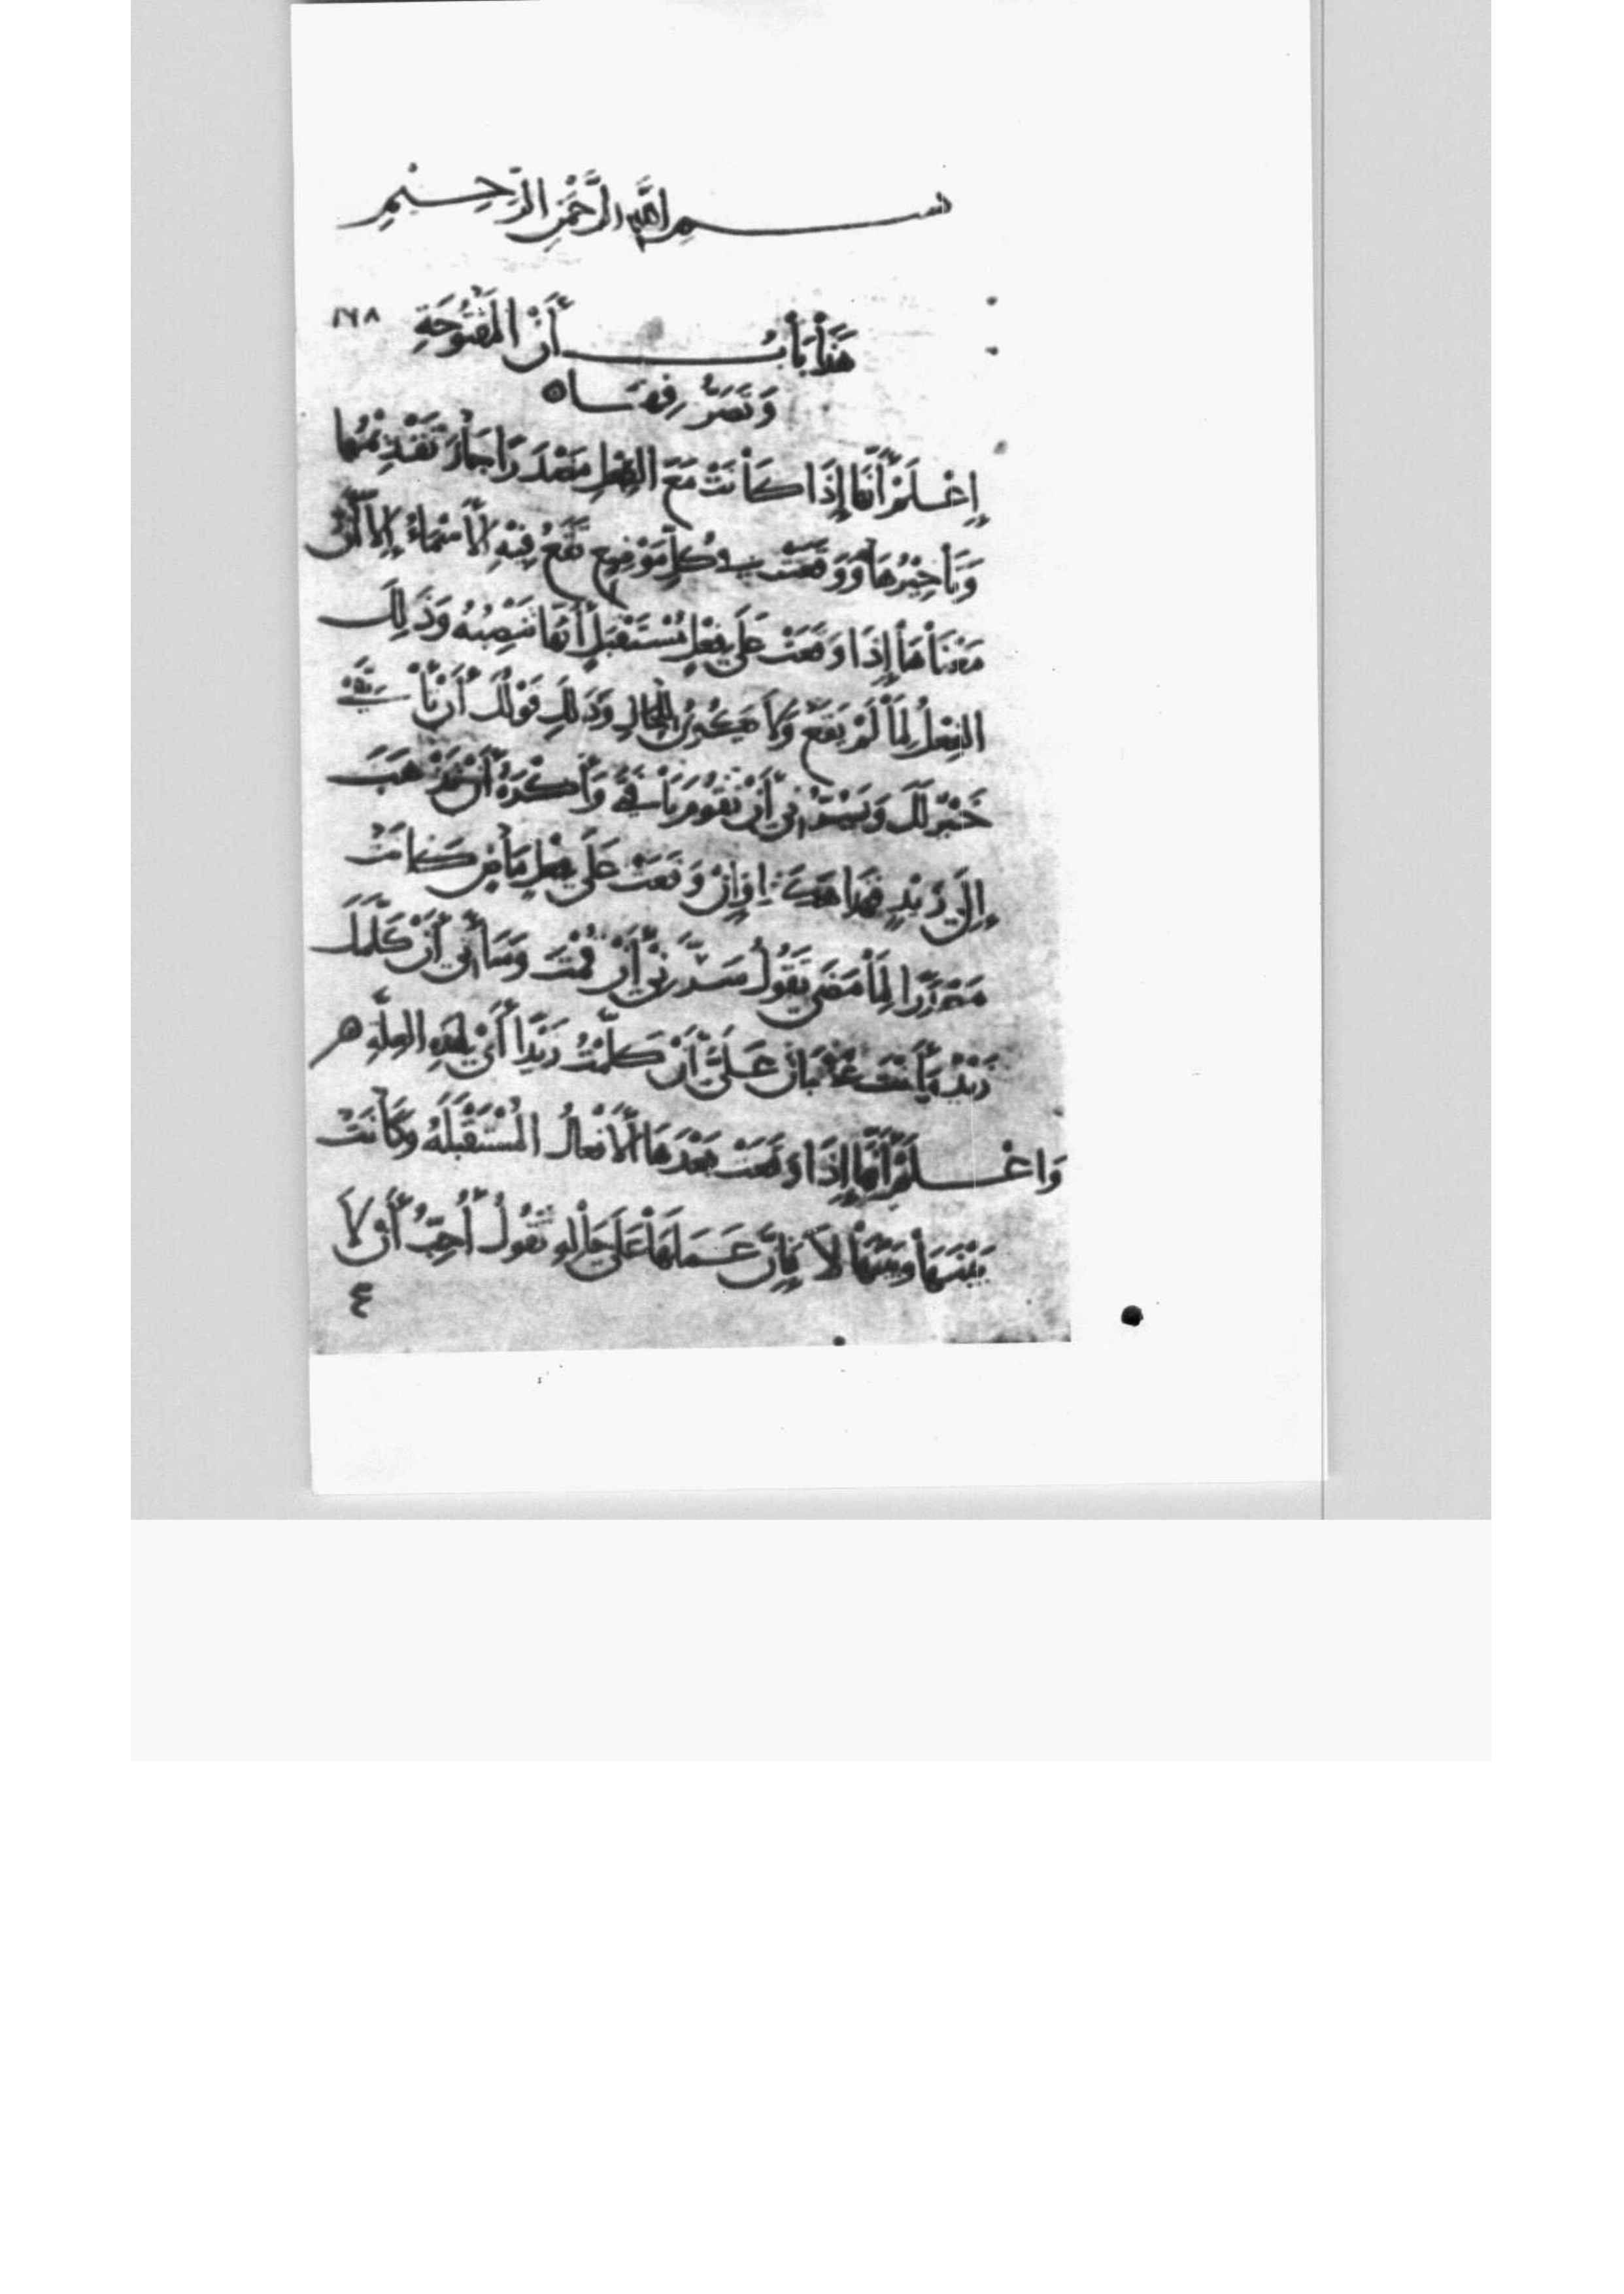 بسم الله الرَّحْمَنِ الرَّحِيمِ
هَذَا بَابُ أَنْ المَفْتُوحَةِ
١٧٨
وَتَصَرُّفِهَا ه
إِعْلَمْ أَنَّهَا إِذَا كَانَتْ مَعَ الفِعْلِ مَصْدَرًا جَازَ تَقْدِيمُهَا
وَتَأْخِيْرُهَا وَوَقَعَتْ فِي كُلِّ مَوْضِعٍ تَقَعُ فِيْهِ الأَسْمَاءُ إِلاَّ أَنَّ
مَعْنَاهَا إِذَا وَقَعَتْ عَلَى فِعْلٍ مُسْتَقْبَلٍ أَنَّهَا تَنْصِبُهُ وَذَلِكَ
الفِعْلُ لِمَا لَمْ يَقَعْ وَلَا يَكُونُ لِلْحَالِ وَذَلِكَ قَوْلُكَ أَنْ تَأْتِيَنِي
خَيْرٌ لَكَ وَيَسُرُّنِي أَنْ تَقُومَ يَا فَتَى وَأَكْرَهُ أَنْ تَذْهَبَ
إِلَى زَيْدٍ فَهَذَا هَكَذَا فَإِنْ وَقَعَتْ عَلَى فِعْلٍ مَاضٍ كَانَتْ
مَصْدَرًا لِمَا مَضَى تَقُولُ سَرَّنِي أَنْ قُمْتَ وَسَاءَنِي أَنْ كَلَّمَكَ
زَيْدٌ وَأَنْتَ غَضْبَانُ عَلَيَّ أَنْ كَلَّمْتُ زَيْدًا أَيْ لِهَذِهِ العِلَّةِ ه
وَاعْلَمْ أَنَّهَا إِذَا وَقَعَتْ بَعْدَهَا الأَفْعَالُ المُسْتَقْبَلَةُ وَكَانَتْ
بَيْنَهَا وَبَيْنَهَا لاَ فَإِنَّ عَمَلَهَا عَلَى حَالِهِ تَقُولُ أُحِبُّ أَنْ لاَ
٤